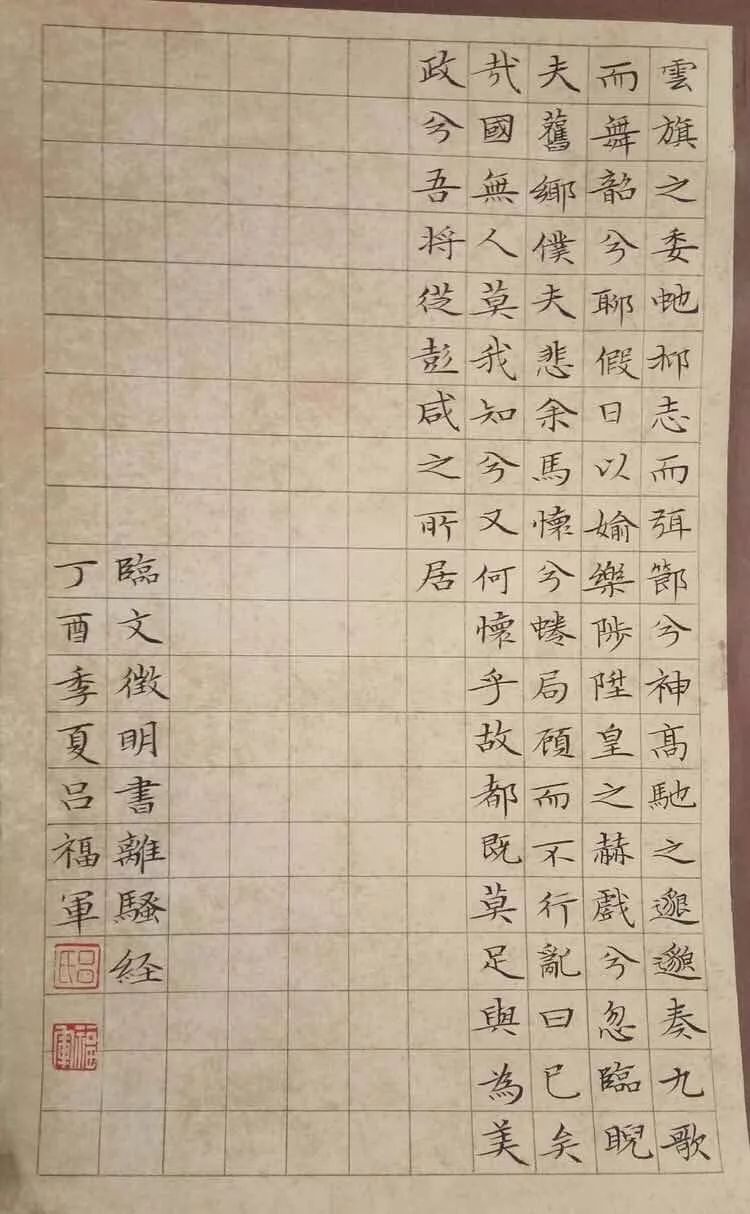 雲旗之委虵抑志而弭節兮神髙馳之邈邈奏九歌
而舞韶兮聊假日以婾樂陟陞皇之赫戲兮忽臨睨
夫舊鄉僕夫悲余馬懷兮蜷局顧而不行亂曰已矣
哉國無人莫我知兮又何懷乎故都既莫足與為美
政兮吾将從彭咸之所居
臨文徵明書離騷経
丁酉季夏吕福軍
吕氏
福軍